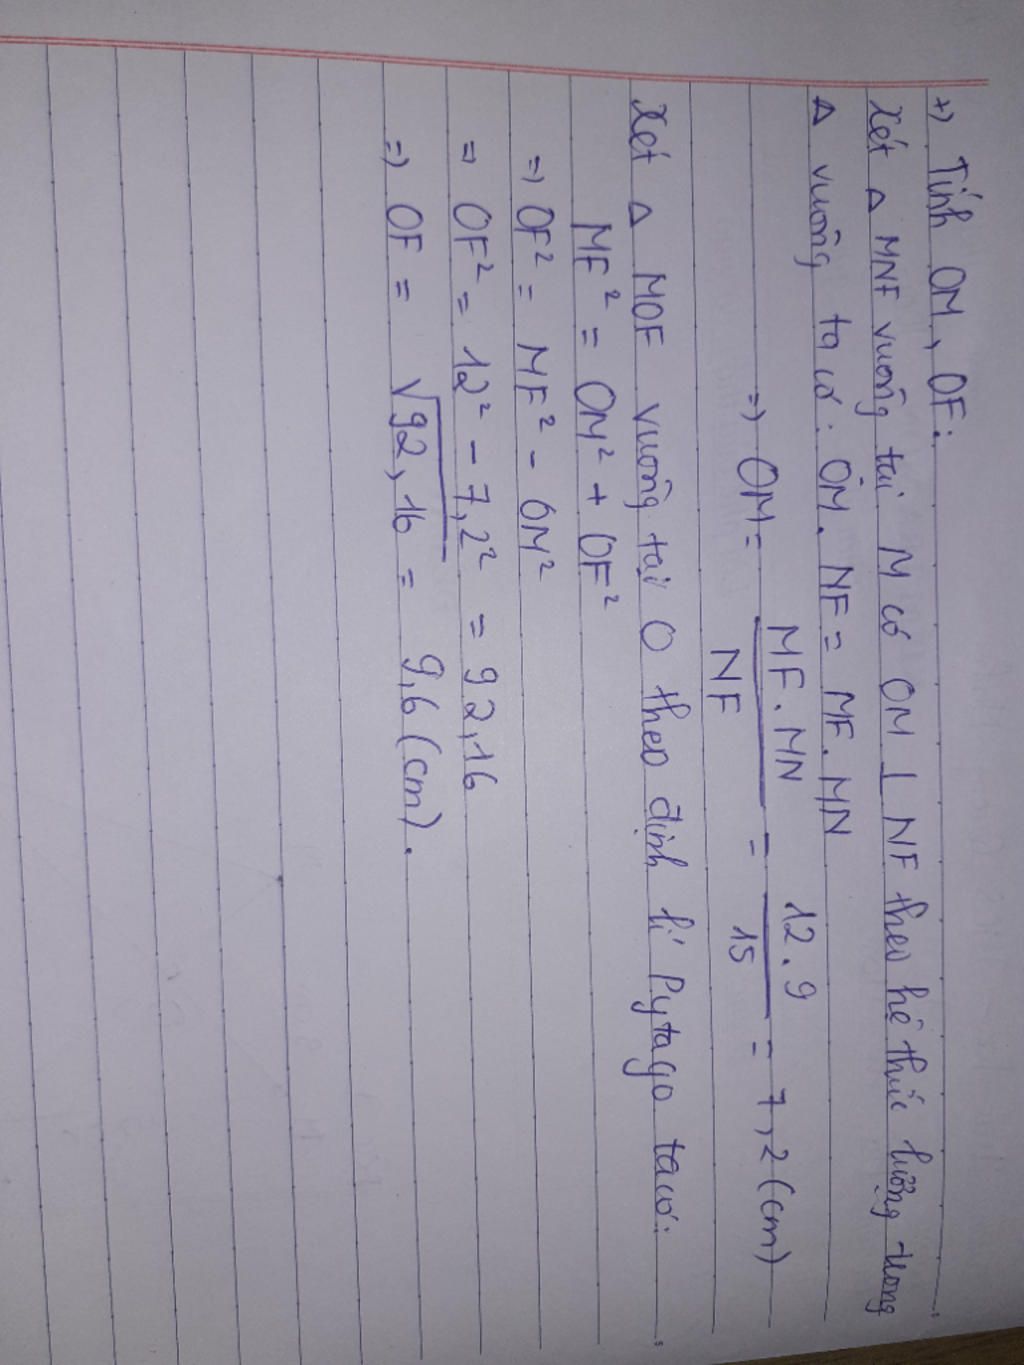 +) Tính OM, OF:
Xét Δ MNF vuông tại M có OM ⊥ NF theo hệ thức lượng trong
Δ vuông ta có: OM. NF = MF. MN
=) OM = MF. MN / NF = 12. 9 / 15 = 7,2 (cm)
Xét Δ MOF vuông tại O theo định lí Pytago ta có:
MF² = OM² + OF²
=) OF² = MF² - OM²
=) OF² = 12² - 7,2² = 92,16
=) OF = √92,16 = 9,6 (cm).